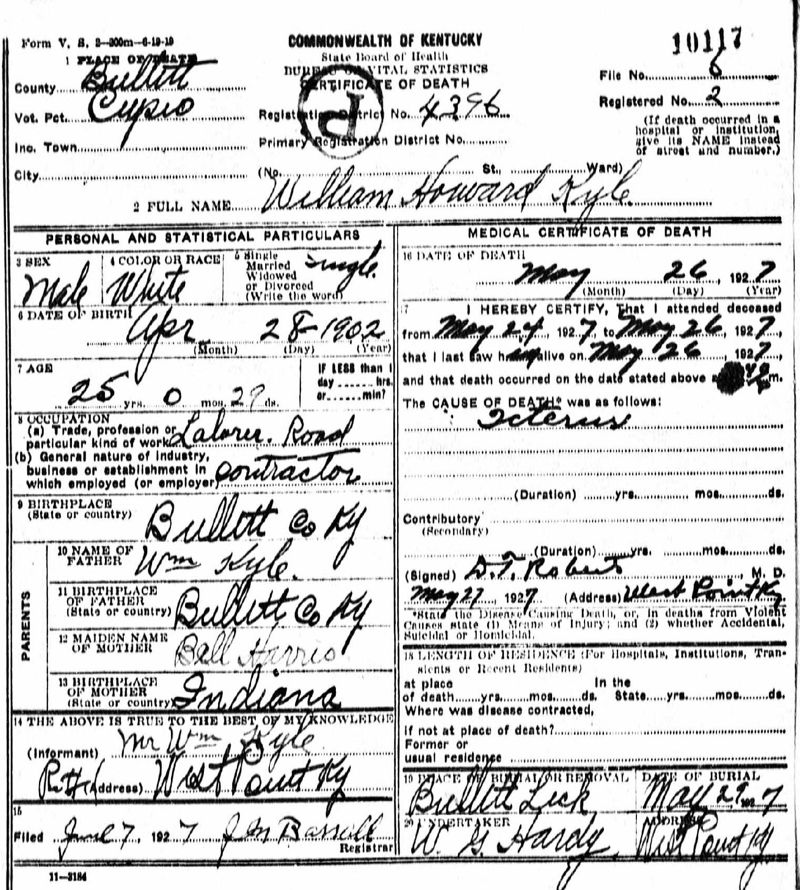 Form V. S. 2-300m-6-19-19
COMMONWEALTH OF KENTUCKY
State Board of Health
BUREAU OF VITAL STATISTICS
CERTIFICATE OF DEATH
10117
1 PLACE OF DEATH
County Bullitt
File No. 6
Vot. Pct. Cupio
Registration District No. 4396
Registered No. 2
Inc. Town
Primary Registration District No.
(If death occurred in a hospital or institution, give its NAME instead of street and number.)
City (No. St., Ward)
2 FULL NAME William Howard Kyle
PERSONAL AND STATISTICAL PARTICULARS
3 SEX Male
4 COLOR OR RACE White
5 Single Married Widowed or Divorced (Write the word) Single
6 DATE OF BIRTH Apr 28 1902
(Month) (Day) (Year)
7 AGE
25 yrs. 0 mos. 29 ds.
IF LESS than 1 day hrs. or min?
8 OCCUPATION
(a) Trade, profession or particular kind of work Laborer. Road
(b) General nature of industry, business or establishment in which employed (or employer) contractor
9 BIRTHPLACE
(State or country) Bullitt Co Ky
PARENTS
10 NAME OF FATHER Wm Kyle.
11 BIRTHPLACE OF FATHER (State or country) Bullitt Co Ky
12 MAIDEN NAME OF MOTHER Ball Harris
13 BIRTHPLACE OF MOTHER (State or country) Indiana
14 THE ABOVE IS TRUE TO THE BEST OF MY KNOWLEDGE
(Informant) Mr Wm Kyle
(Address) West Point Ky
15
Filed June 7, 1927 Registrar
11-3184
MEDICAL CERTIFICATE OF DEATH
16 DATE OF DEATH
May 26, 1927
(Month) (Day) (Year)
17 I HEREBY CERTIFY, That I attended deceased
from May 24, 1927 to May 26, 1927,
that I last saw him alive on May 26, 1927,
and that death occurred on the date stated above m.
The CAUSE OF DEATH* was as follows:
Icterus
(Duration) yrs. mos. ds.
Contributory
(Secondary)
(Duration) yrs. mos. ds.
(Signed) D. T. Roberts M. D.
May 27 1927 (Address) West Point Ky
*State the Disease Causing Death, or, in deaths from Violent Causes state (1) Means of Injury; and (2) whether Accidental, Suicidal or Homicidal.
18 LENGTH OF RESIDENCE (For Hospitals, Institutions, Transients or Recent Residents)
at place of death yrs. mos. ds. In the State yrs. mos. ds.
Where was disease contracted,
if not at place of death?
Former or usual residence
19 PLACE OF BURIAL OR REMOVAL Bullitt Lick
DATE OF BURIAL May 27, 1927
20 UNDERTAKER W G Hardy, West Point Ky